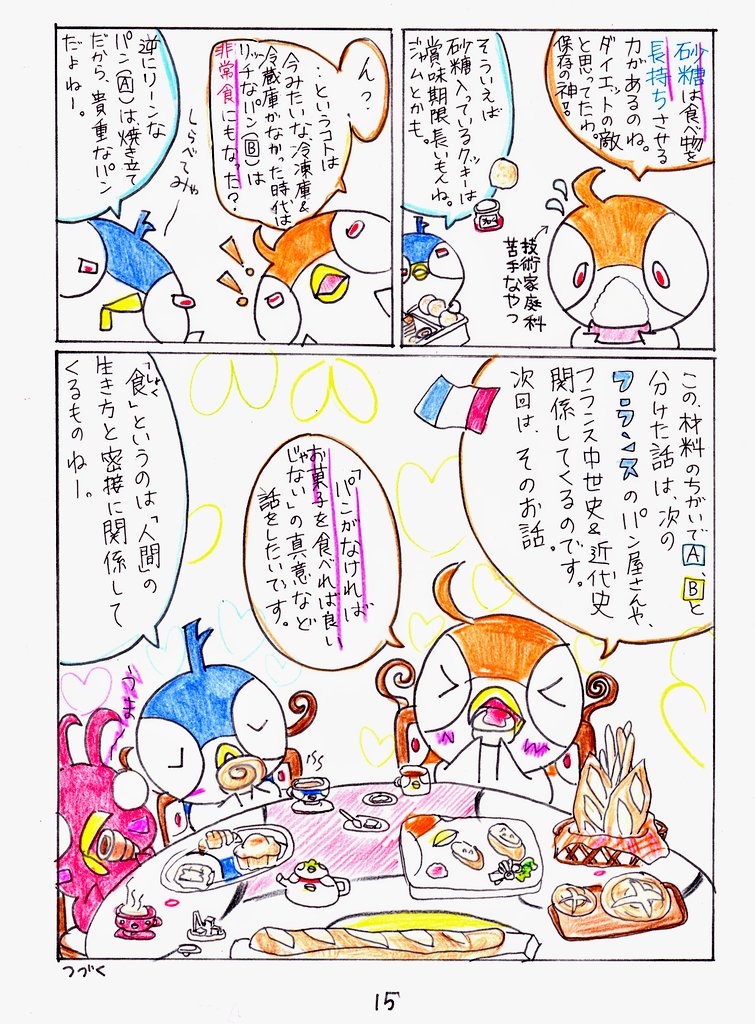 砂糖は食べ物を
長持ちさせる
力があるのね。
ダイエットの敵
と思ってたわ。
保存の神!!
そういえば
砂糖入っているクッキーは
賞味期限長いもんね。
ジャムとかも。
技術家庭科
苦手なやつ
んっ?
…というコトは
今みたいな、冷凍庫&
冷蔵庫がなかった時代は
リッチなパン(B)は
非常食にもなった?
逆にリーンな
パン(A)は焼き立て
だから、貴重なパン
だよねー。
しらべてみゃ
この、材料のちがいでA、Bと
分けた話は、次の
フランスのパン屋さんや、
フランス中世史&近代史
関係してくるのです。
次回は、そのお話。
「パンがなければ
お菓子を食べれば良い
じゃない」の真意など
話をしたいです。
「食」というのは「人間」の
しょく
生き方と密接に関係して
くるものねー。
うま〜
つづく
15